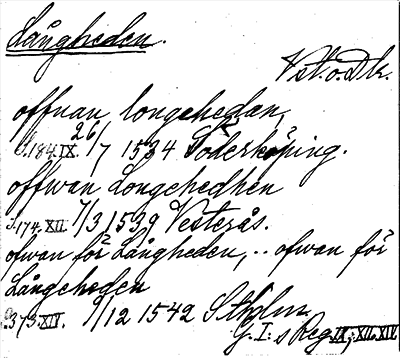 Långheden.
Vst. o. Dlr.
offuan longehedan,
S. 184. IX. 26/7 1534 Söderköping.
offwan Longehedhen
S. 174. XII. 7/3 1539 Vesterås.
ofwan för Långheden, .. ofwan för
Långeheden
S. 373. XIV. 9/12 1542 Sthlm.
G. I: s Reg. IX; XII. XIV